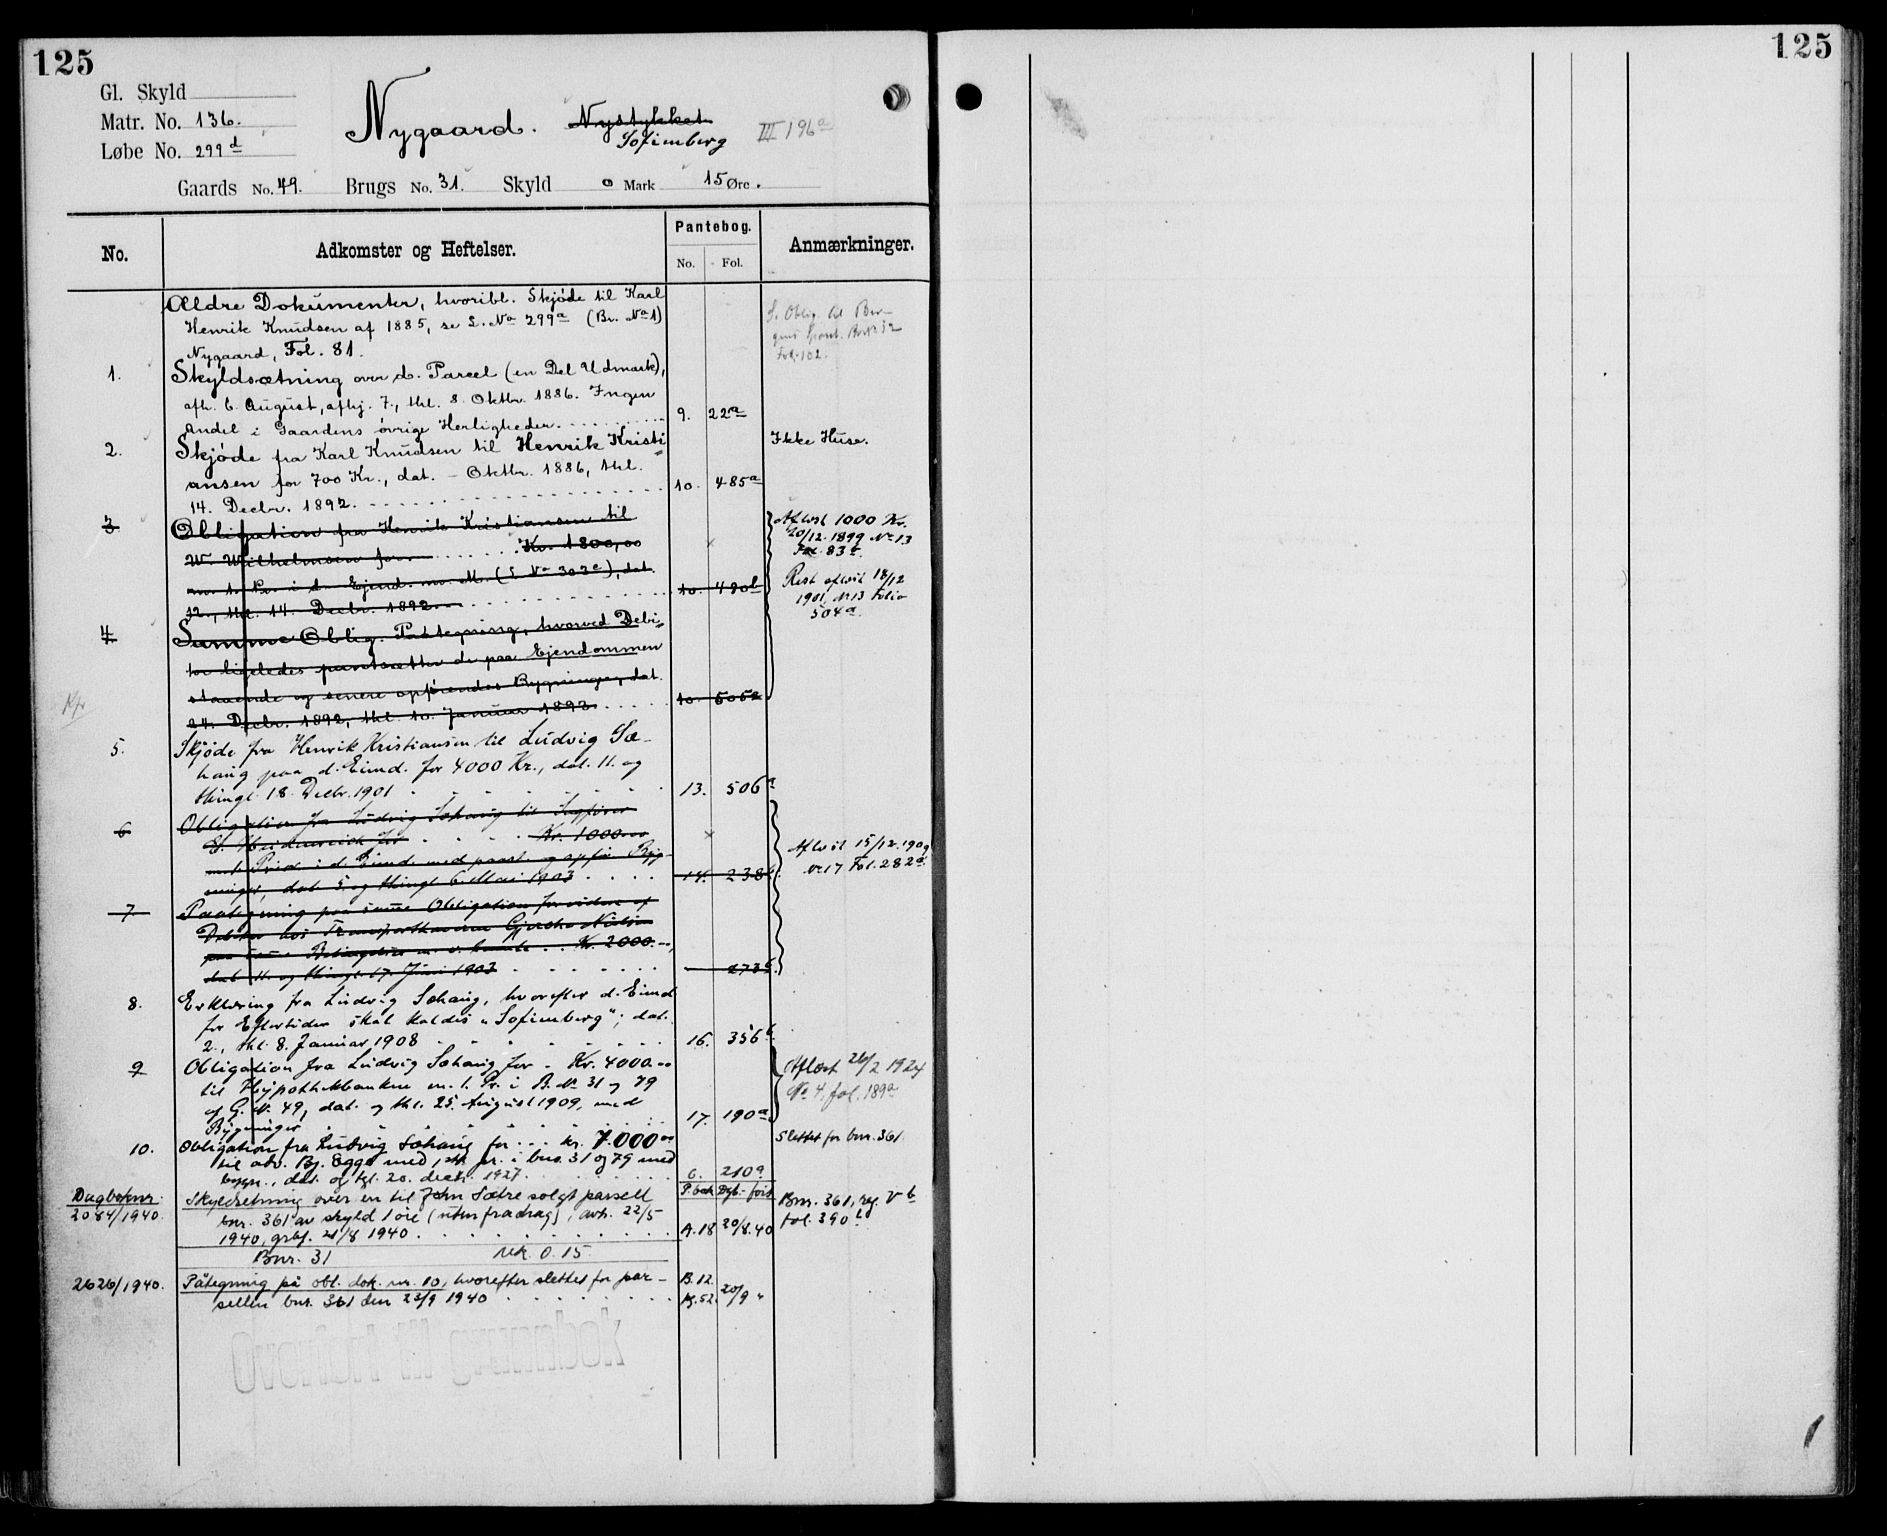 125
125
Gl. Skyld
Matr. No. 136.
Løbe No. 299d
Nygaard. Nystykket
Sofienberg
III 196a
Gaards No. 49. Brugs No. 31. Skyld 0 Mark 15 Øre.
No. Adkomster og Heftelser. Pantebog. Anmærkninger.
No. Fol.
Ældre Dokumenter, hvoribl. Skjøde til Karl
Henrik Knudsen af 1885, se L. No 299a (Br. No 1)
Nygaard, Fol. 81.
S. Oblig. til Ber-
Fol. 102.
1. Skyldsætning over d. Parcel (en Del Udmark),
afh. 6. August, afhj. 7., thl. 8. Oktbr. 1886. Ingen
Andel i Gaardens øvrige Herligheder. 9. 22a
2. Skjøde fra Karl Knudsen til Henrik Kristi=
ansen for 700 Kr., dat. - Oktbr. 1886, thl.
14. Decbr. 1892. 10. 485a
Ikke Huse.
3 Obligation fra Henrik Kristiansen til
W. Wilhelmsen for Kr. 1800,00
m. 1. Pr. i d. Ejend. m. M. (L. No 303c), dat.
12., thl. 14. Decbr. 1892. 10. 480b
Aflæst 1000 Kr.
20/12 1899 No 13
Fol. 83b.
Rest aflæst 18/12
1901, No 13 Folio
504a.
4 Samme Oblig. Paategning, hvorved Debi=
tor ligeledes pantsætter de paa Ejendommen
staaende og senere opførendes Bygninger, dat.
24. Decbr. 1892, thl. 10. Januar 1893. 10. 505a
5. Skjøde fra Henrik Kristiansen til Ludvig Sæ-
haug paa d. Eiend. for 4000 Kr., dat. 11. og
thingl. 18. Decbr. 1901 13. 506a
6 Obligation fra Ludvig Sæhaug til Sagfører
Kr. 1000.00
m. 1. Prior. i d. Eiend. med paast. og opfør. Byg-
ninger, dat. 5. og thingl. 6. Mai 1903 14. 238
Aflæst 15/12 1909
No 17 Fol. 282a.
7 Paategning paa samme Obligation for viden af
Debitor hos Transporthaveren Gjerche Nielsen
paa samme Betingelser Kr. 2000.00,
dat. 11. og thingl. 17. Juni 1903 273
8. Erklæring fra Ludvig Sæhaug, hvorefter d. Eiend.
for Eftertiden skal kaldes "Sofienberg"; dat.
2., thl. 8. Januar 1908 16. 356b
9 Obligation fra Ludvig Sæhaug for Kr. 4000.00
til Hypothekbanken m. 1. Pr. i B. No 31 og 79
af G. No 49, dat. og thl. 25. August 1909, med
Bygninger 17. 190a
Aflæst 26/2 1924
No 4, fol. 189a
10. Obligation fra Ludvig Sæhaug for kr. 7.000.00
til adv. Bj. Egge med 1ste pr. i bno. 31 og 79 med
bygn., dat. og tgl. 20. decbr. 1927. 6. 210a
Slettet for bnr. 361.
Dagboknr. P.bok Dgb.-ført
2084/1940. Skyldsetning over en til John Sætre solgt parsell
bnr. 361 av skyld 1 øre (uten fradrag), avh. 22/5
1940, grbf. 21/8 1940 A. 18 20/8.40
Bnr. 361, reg. V b
fol. 390b
Bnr. 31 mk. 0.15
2626/1940. Påtegning på obl. dok. nr. 10, hvorefter slettes for par-
sellen bnr. 361 den 23/9 1940 B. 12 20/9 "
Overført til grunnbok